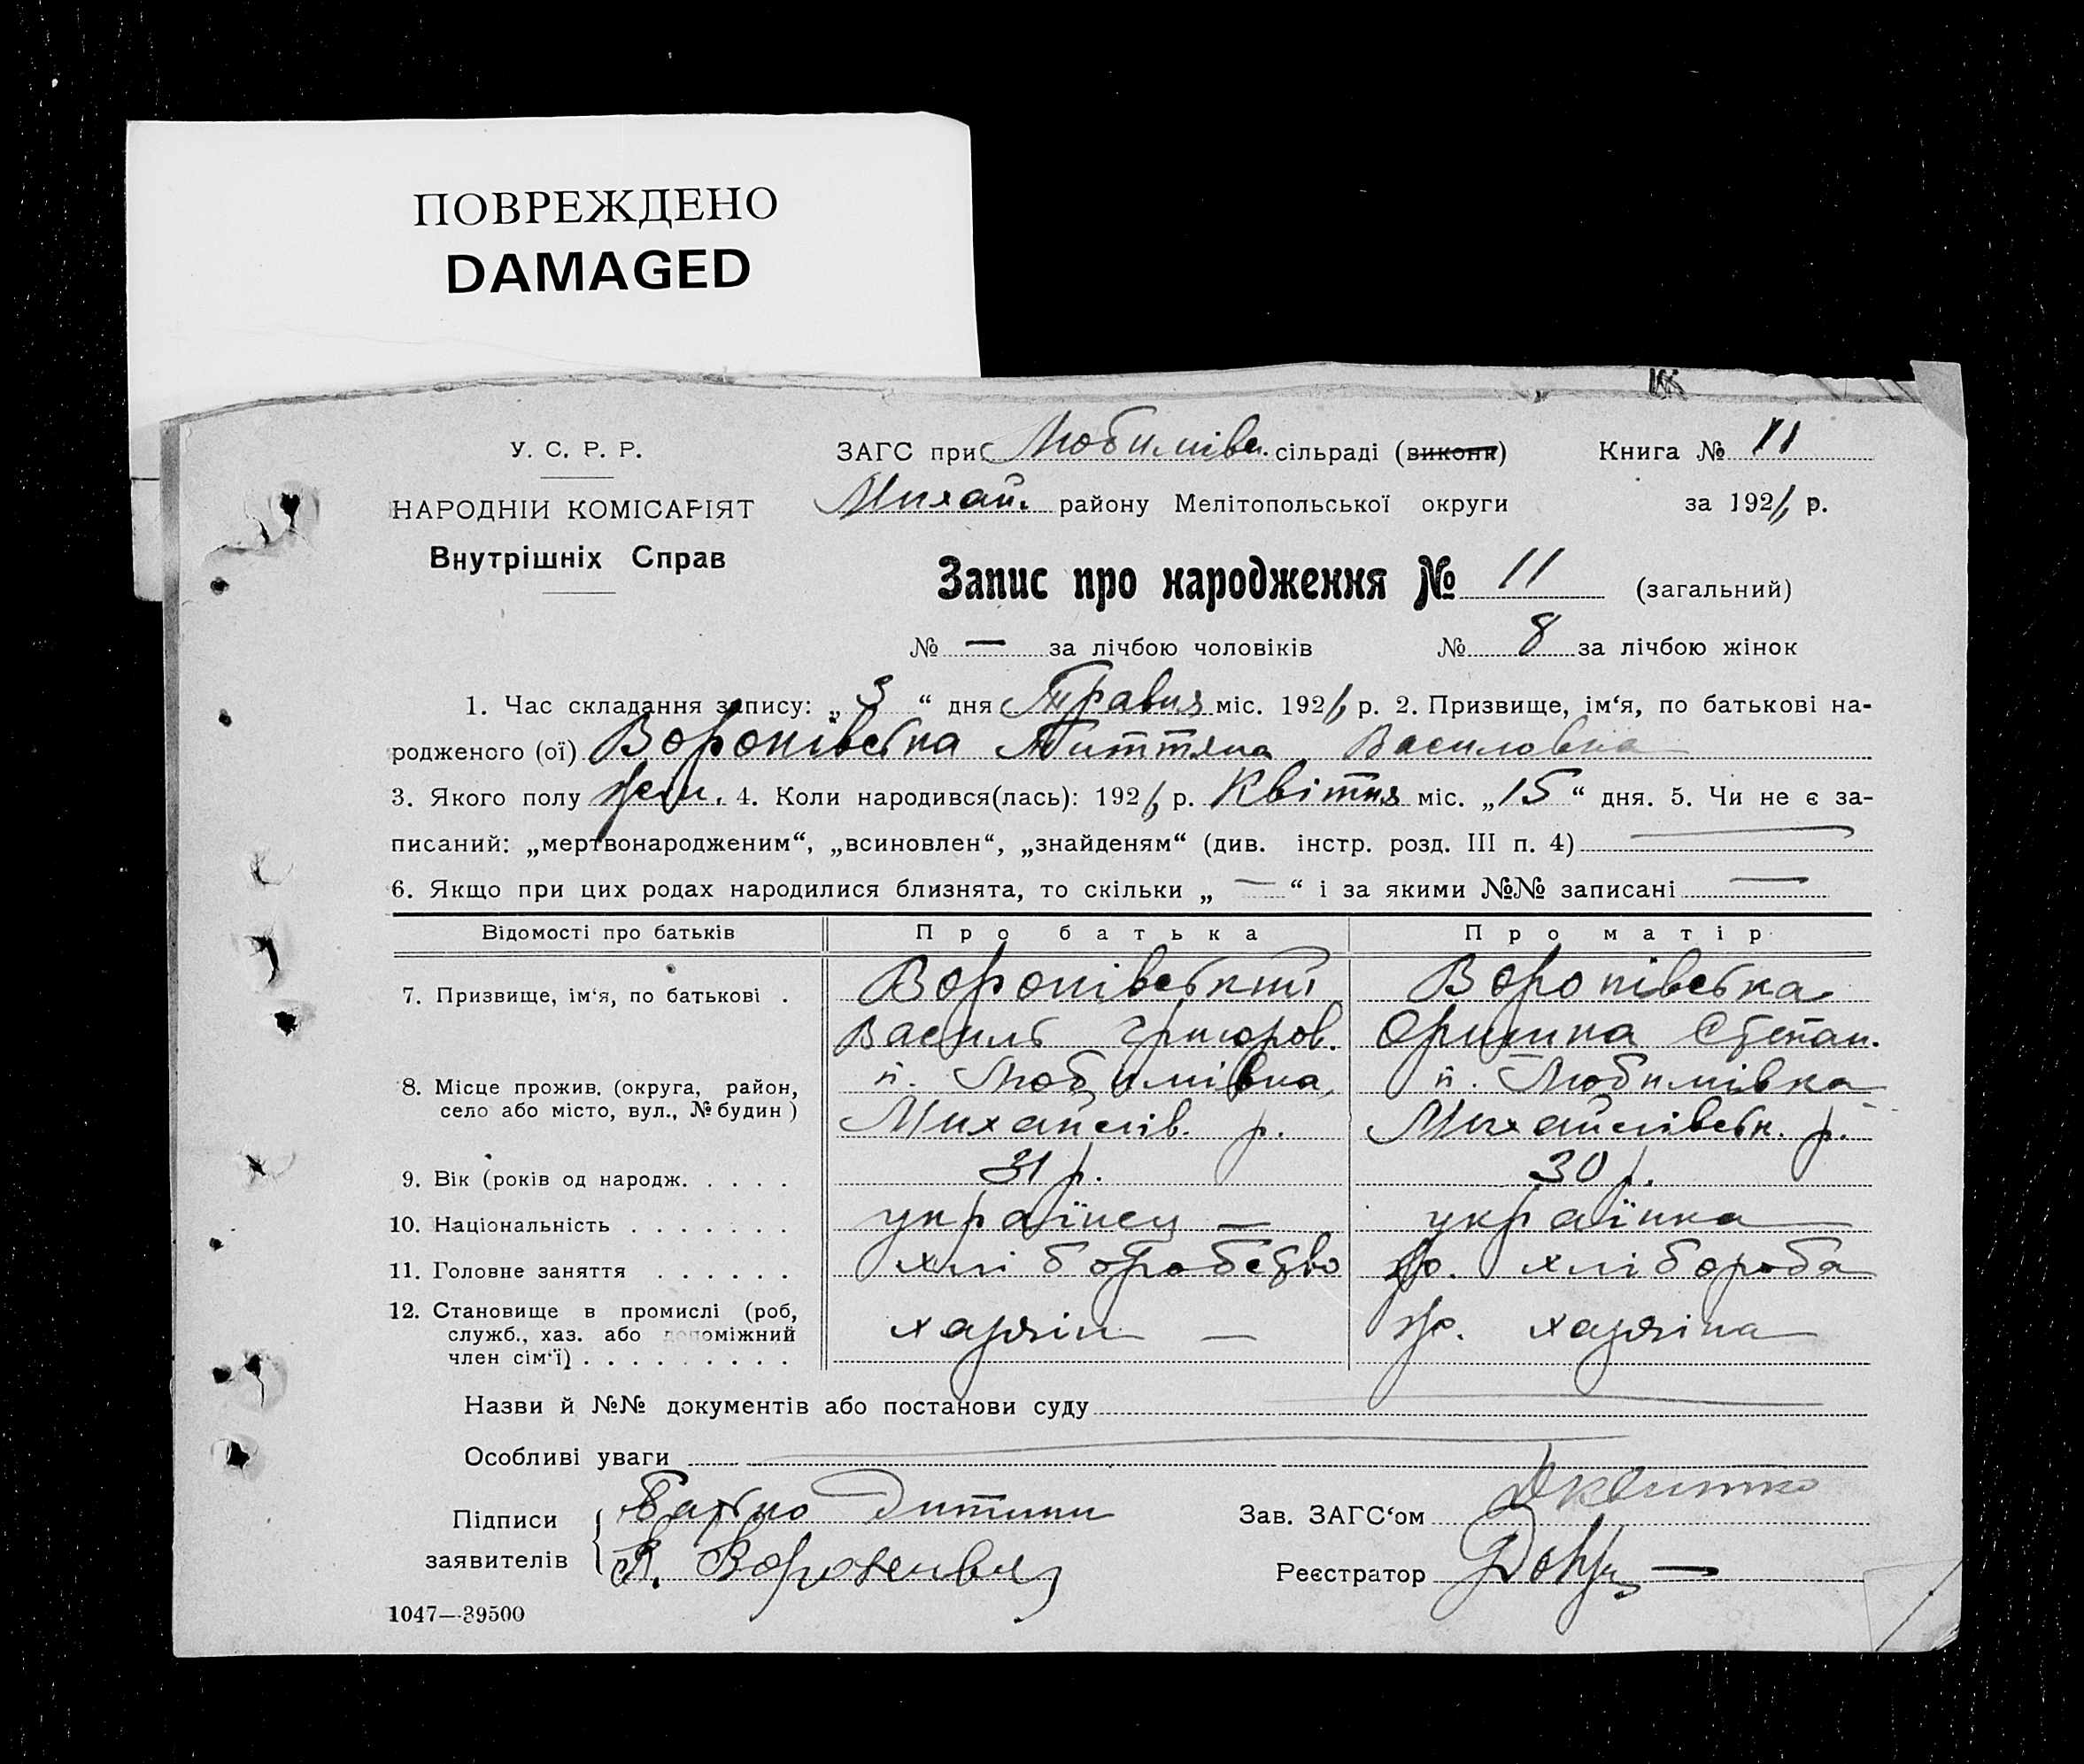 ПОВРЕЖДЕНО
DAMAGED
У. С. Р. Р.
НАРОДНІЙ КОМІСАРІЯТ
Внутрішніх Справ
ЗАГС при Любимівс. сільраді (виконк) Книга № 11
Михай. району Мелітопольської округи за 1926 р.
Запис про народження № 11 (загальний)
№ — за лічбою чоловіків № 8 за лічбою жінок
1. Час складання запису: „ 3 “ дня Травня міс. 1926 р. 2. Призвище, ім‘я, по батькові на-
родженого (ої) Воронівська Титтяна Василовна
3. Якого полу жін. 4. Коли народився(лась): 1926 р. Квітня міс. „15“ дня. 5. Чи не є за-
писаний: „мертвонародженим“, „всиновлен“, „знайденям“ (див. інстр. розд. III п. 4) —
6. Якщо при цих родах народилися близнята, то скільки „ — “ і за якими №№ записані —
Відомості про батьків Про батька Про матір
7. Призвище, ім‘я, по батькові . Воронівський Воронівська
Василь Григоров. Оришка Степан.
8. Місце прожив. (округа, район, п. Любимівка, п. Любимівка
село або місто, вул., № будин) Михайлів. р. Михайлівськ. р.
9. Вік (років од народж. . . . . 31 р. 30 р.
10. Національність . . . . . . . українец — українка —
11. Головне заняття . . . . . . хліборобство хлібороба
12. Становище в промислі (роб, хазяін — жр. хазяіна
служб., хаз. або допоміжний
член сім‘ї) . . . . . . . . .
Назви й №№ документів або постанови суду
Особливі уваги
Підписи Батько дитини Зав. ЗАГС‘ом
заявителів В. Реєстратор
1047—39500